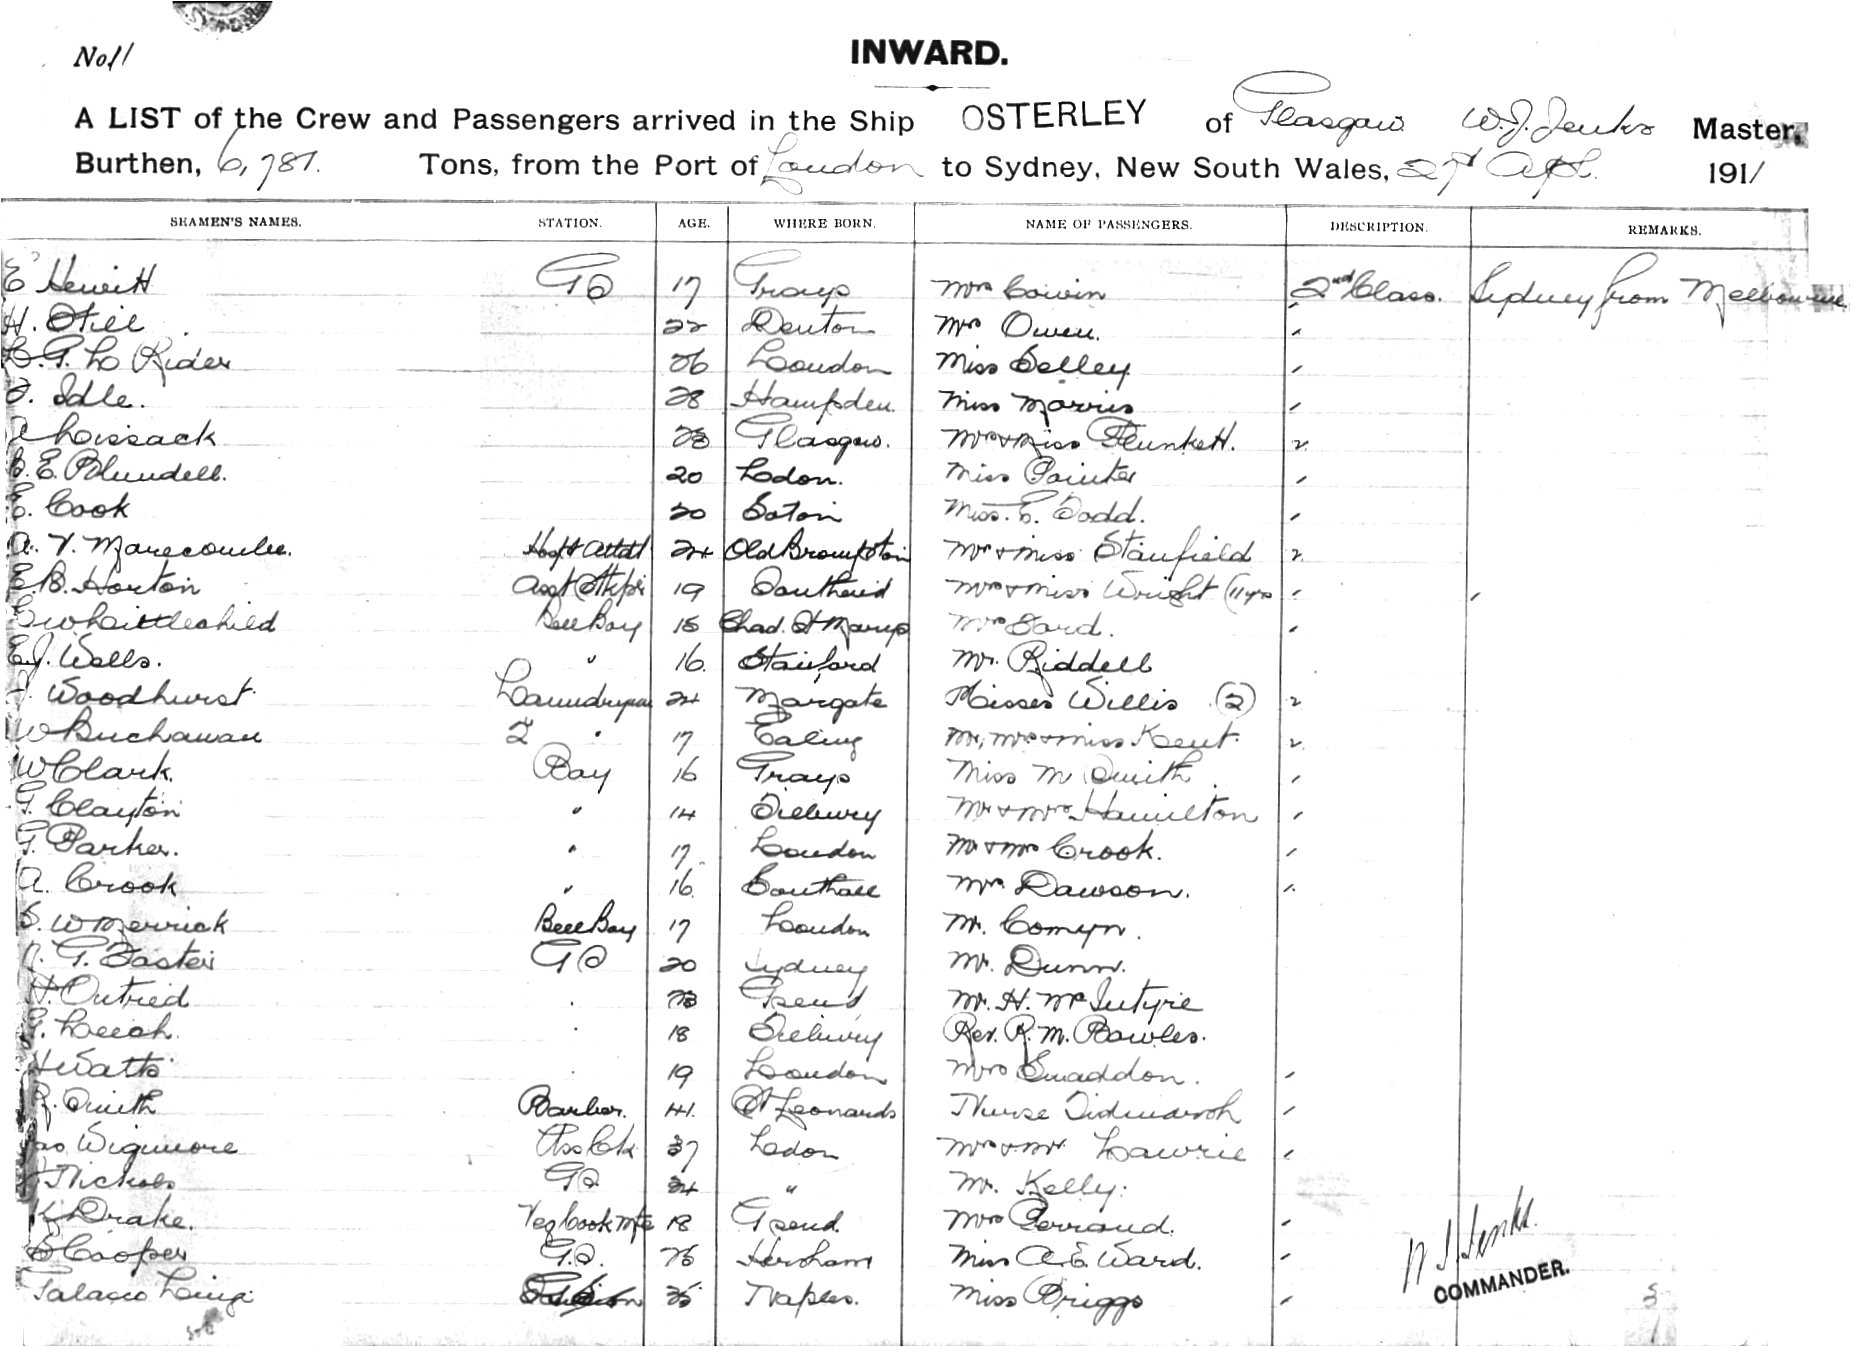 No 11
INWARD.
A LIST of the Crew and Passengers arrived in the Ship OSTERLEY of Glasgow W. J. Jenks Master,
Burthen, 6,781. Tons, from the Port of London to Sydney, New South Wales, 27th Apl. 1911
SEAMEN'S NAMES. STATION. AGE. WHERE BORN. NAME OF PASSENGERS. DESCRIPTION. REMARKS.
E Hewitt GS 17 Grays Mrs Cowin 2nd Class. Sydney from Melbourne
H. Still 22 Denton Mrs Owen. "
G. L Rider 26 London Miss Selley "
Idle. 28 Hampden. Miss Morris "
Loissack 23 Glasgow. Mrs & Miss Plunkett. 2
E. Blundell. 20 Ldon. Miss Pointer "
E. Cook 20 Eaton Miss. E. Dodd. "
A. V. Marecombe. Hospt Attdt 24 Old Brompton Mrs & Miss Stanfield 2
E. B. Horton Asst Stkpr 19 Southend Mrs & Miss Wright (11 yrs " "
Whittlechild Bell Boy 15 Chad. St Marys Mrs Fard. "
E. J. Wells. " 16. Stanford Mr. Riddell
Woodhurst Laundryman 24 Margate Misses Willis (2) 2
W Buchanan 2 " 17 Ealing Mr, Mrs & Miss Kent. 2
W Clark. Boy 16 Grays Miss M Smith "
G. Clayton " 14 Tilbury Mr & Mrs Hamilton "
G. Parker. " 17 London Mr & Mrs Crook. "
A. Crook " 16. Southall Mrs Dawson. "
S. W Merrick Bell Boy 17 London Mr. Comyn.
G. Easter GS 20 Sydney Mr. Dunn.
H. Outried 23 Gsend Mr. H. McIntyre
G. Leech. 18 Tilbury Rev. R. M. Bowles.
H Watts 19 London Mrs Swaddon. "
Smith Barber. 41. St Leonards Nurse "
Jas Wigmore Ass Ck 37 Ldon Mrs & Mr Lawrie "
Nickols GS 24 " Mr. Kelly.
Drake. Veg Cook Mte 18 Gsend. Mrs Perraud. "
Cooper G.S. 26 Hersham Miss A. E. Ward. "
Galasso Luigi 25 Naples. Miss Briggs "
W. J. Jenks.
COMMANDER.